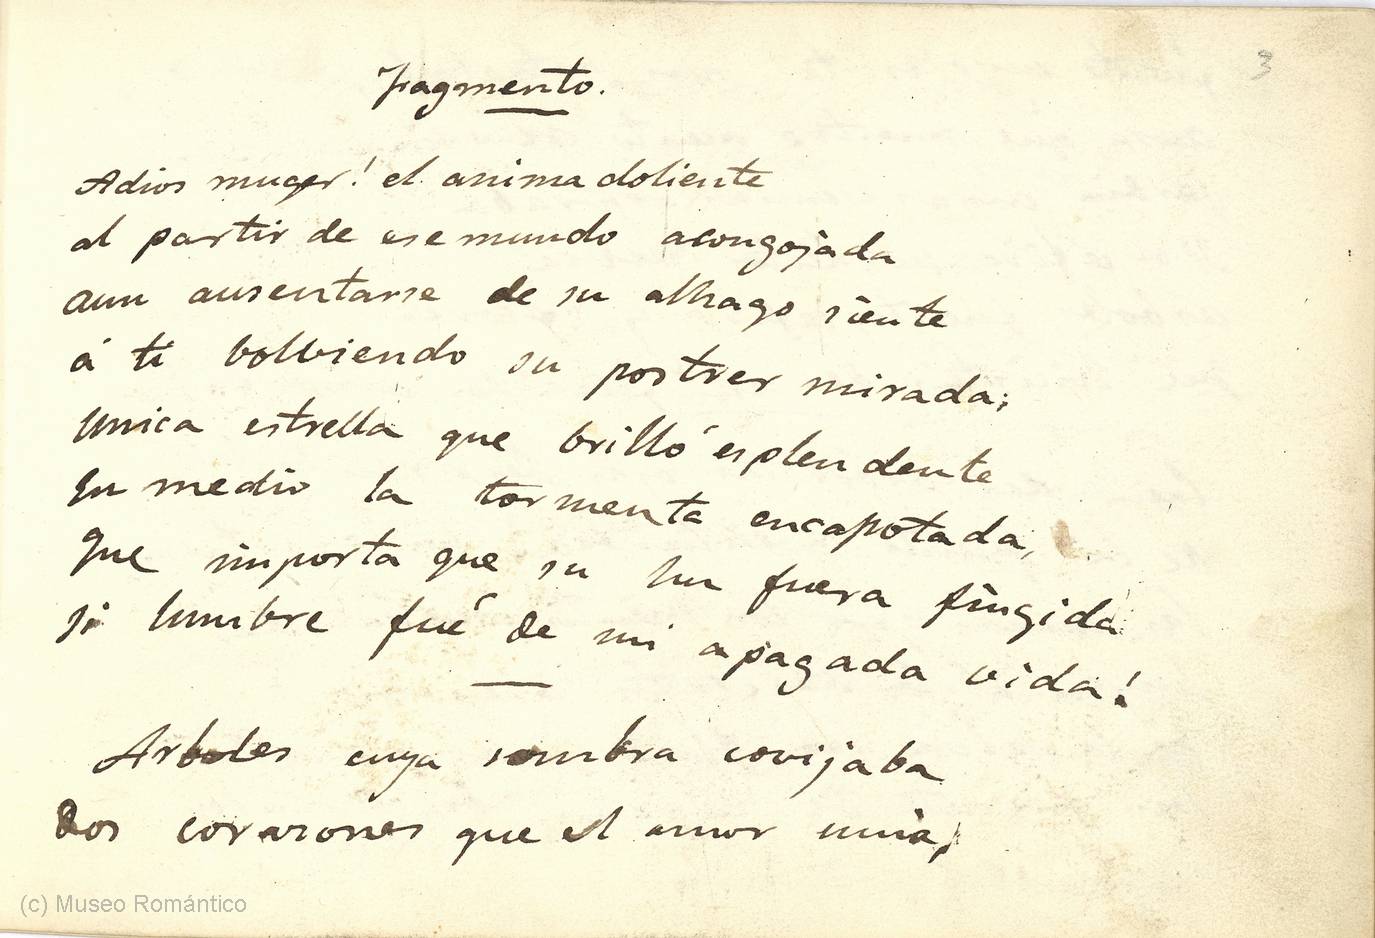 3
Fragmento.
Adios muger! el anima doliente
al partir de ese mundo acongojada
aun ausentarse de su alhago siente
á ti bolbiendo su postrer mirada;
Unica estrella que brilló esplendente
En medio la tormenta encapotada,
Que importa que su luz fuera fingida
si lumbre fué de mi apagada vida!
Arboles cuya sombra covijaba
Dos corazones que el amor unia,
(c) Museo Romántico